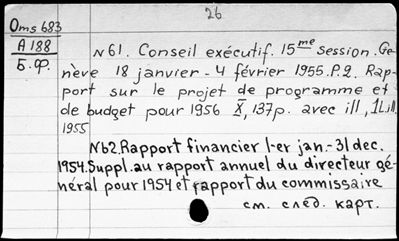 26
Oms 683
A 188
Б.ф.
N 61. Conseil exécutif. 15me session. Ge-
nève 18 janvier - 4 février 1955. P.2. Rap-
port sur le projet de programme et
de budget pour 1956 X, 137p. avec ill, 1 L ill.
1955
N 62. Rapport financier 1-er jan.-31 dec.
1954. Suppl. au rapport annuel du directeur gé-
néral pour 1954 et rapport du commissaire
см. след. карт.